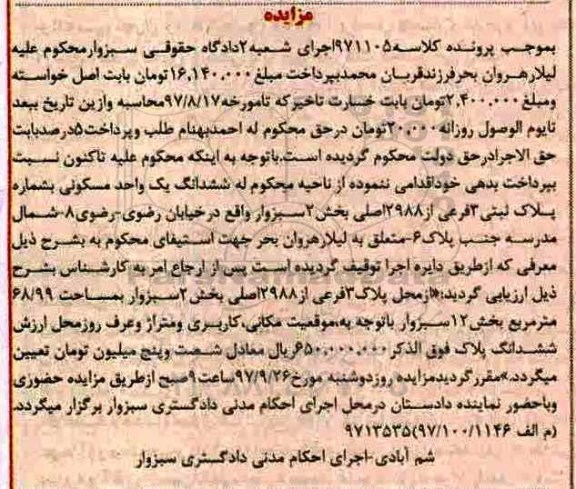 مزایده
بموجب پرونده کلاسه ۹۷۱۱۰۵اجرای شعبه۲دادگاه حقوقی سبزوارمحکوم علیه
لیلارهروان بحرفرزندقربان محمدبپرداخت مبلغ ۱۶,۱۴۰,۰۰۰تومان بابت اصل خواسته
ومبلغ ۲,۴۰۰,۰۰۰تومان بابت خسارت تاخیرکه تامورخه۹۷/۸/۱۷محاسبه وازین تاریخ ببعد
تایوم الوصول روزانه ۲۰,۰۰۰تومان درحق محکوم له احمدبهنام طلب وپرداخت۵درصدبابت
حق الاجرادرحق دولت محکوم گردیده است.باتوجه به اینکه محکوم علیه تاکنون نسبت
بپرداخت بدهی خوداقدامی ننموده از ناحیه محکوم له ششدانگ یک واحد مسکونی بشماره
پلاک ثبتی۳فرعی از۲۹۸۸اصلی بخش۲سبزوار واقع درخیابان رضوی-رضوی۸-شمال
مدرسه جنب پلاک۶-متعلق به لیلارهروان بحر جهت استیفای محکوم به بشرح ذیل
معرفی که ازطریق دایره اجرا توقیف گردیده است پس از ارجاع امر به کارشناس بشرح
ذیل ارزیابی گردید:«ازمحل پلاک۳فرعی از۲۹۸۸اصلی بخش۲سبزوار بمساحت ۶۸/۹۹
مترمربع بخش۱۲سبزوار باتوجه به،موقعیت مکانی،کاربری ومتراژ وعرف روزمحل ارزش
ششدانگ پلاک فوق الذکر۶۵۰,۰۰۰,۰۰۰ریال معادل شصت وپنج میلیون تومان تعیین
میگردد.»مقررگردیدمزایده روزدوشنبه مورخ۹۷/۹/۲۶ساعت۹صبح ازطریق مزایده حضوری
وباحضور نماینده دادستان درمحل اجرای احکام مدنی دادگستری سبزوار برگزار میگردد.
(م الف ۹۷/۱۰۰/۱۱۴۶) ۹۷۱۳۵۳۵
شم آبادی-اجرای احکام مدنی دادگستری سبزوار